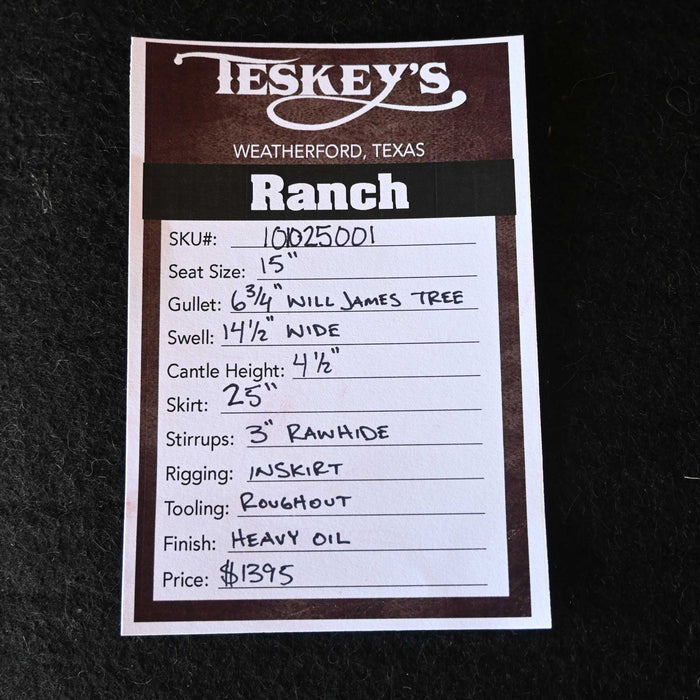 TESKEY'S
WEATHERFORD, TEXAS
Ranch
SKU#: 101025001
Seat Size: 15"
Gullet: 6 3/4" WILL JAMES TREE
Swell: 14 1/2" WIDE
Cantle Height: 4 1/2"
Skirt: 25"
Stirrups: 3" RAWHIDE
Rigging: INSKIRT
Tooling: ROUGHOUT
Finish: HEAVY OIL
Price: $1395